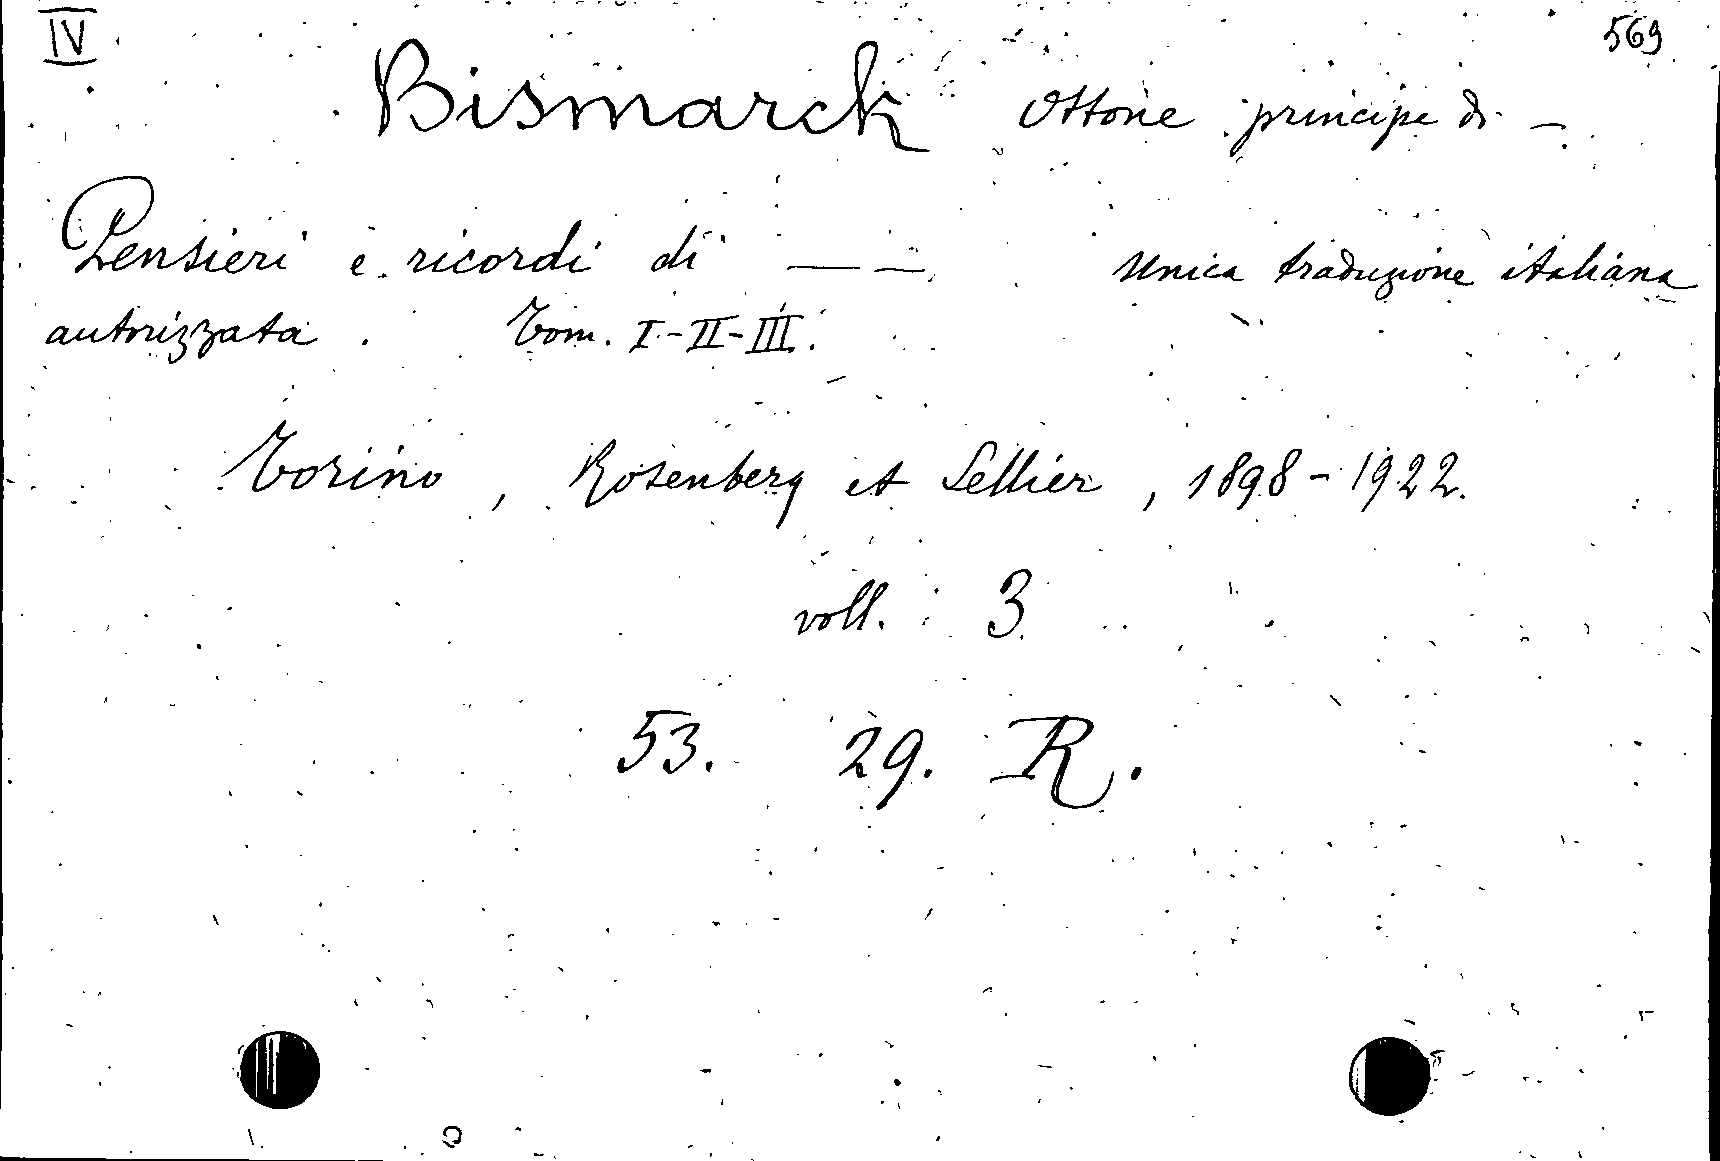 IV 569
Bismarck Ottone principe di —.
Pensieri e ricordi di — —. Unica traduzione italiana
autorizzata. Tom. I-II-III.
Torino, Rosenberg et Sellier, 1898-1922.
voll. 3
53. 29. R.